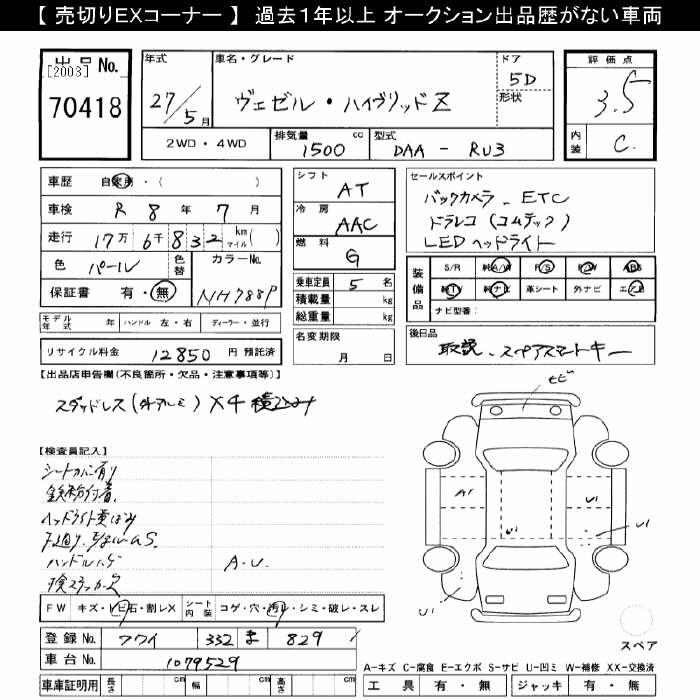 【 売切りEXコーナー 】 過去1年以上 オークション出品歴がない車両
出品 No.
[2003]
70418
年式
27/5月
車名・グレード
ヴェゼル・ハイブリッドZ
ドア
5D
形状
評価点
3.5
内装
C
2WD・4WD
排気量 cc
1500
型式
DAA - RU3
車歴 自家用・( )
車検 R 8年 7月
走行 17万6千832 km マイル( )
色 パール
色替
カラーNo.
NH788P
保証書 有・無
シフト
AT
冷房
AAC
燃料
G
乗車定員 5名
積載量 kg
総重量 kg
名変期限
月 日
セールスポイント
バックカメラ - ETC
ドラレコ(コムテック)
LEDヘッドライト
装備品
S/R 純A/W P/S P/W ABS
純TV 純ナビ 革シート 外ナビ エアB
ナビ型番:
モデル年式 年 ハンドル 左・右 ディーラー・並行
リサイクル料金 12850 円 預託済
後日品
取説、スペアスマートキー
【出品店申告欄(不良箇所・欠品・注意事項等)】
スタッドレス(外アルミ)×4 積込み
【検査員記入】
シートカバー有り
鉄粉付着
ヘッドライト黄ばみ
ハンドルハゲ
A.U.
トビ
A1
U1
U1
U1
U1
U1
FW キズ・トビ石・割レX シート内装 コゲ・穴・汚レ・シミ・破レ・スレ
登録 No. 332 ま 829
車台 No. 1079529
車庫証明用 長さ cm 幅 cm 高さ cm
スペア
A-キズ C-腐食 E-エクボ S-サビ U-凹ミ W-補修 XX-交換済
工具 有・無 ジャッキ 有・無